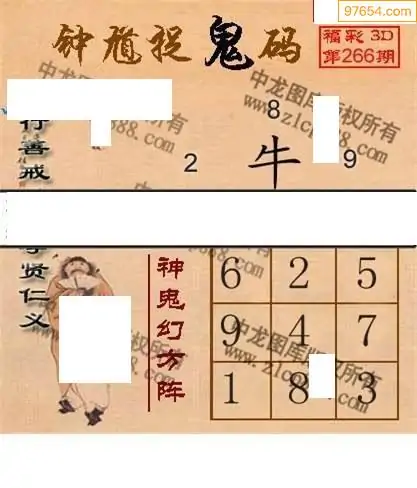 97654.com
钟馗捉鬼码
福彩 3D
第266期
8
2 牛 9
行善戒
孝贤仁义
神鬼幻方阵
6 2 5
9 4 7
1 8 3
中龙图库版权所有
中龙图库版权所有